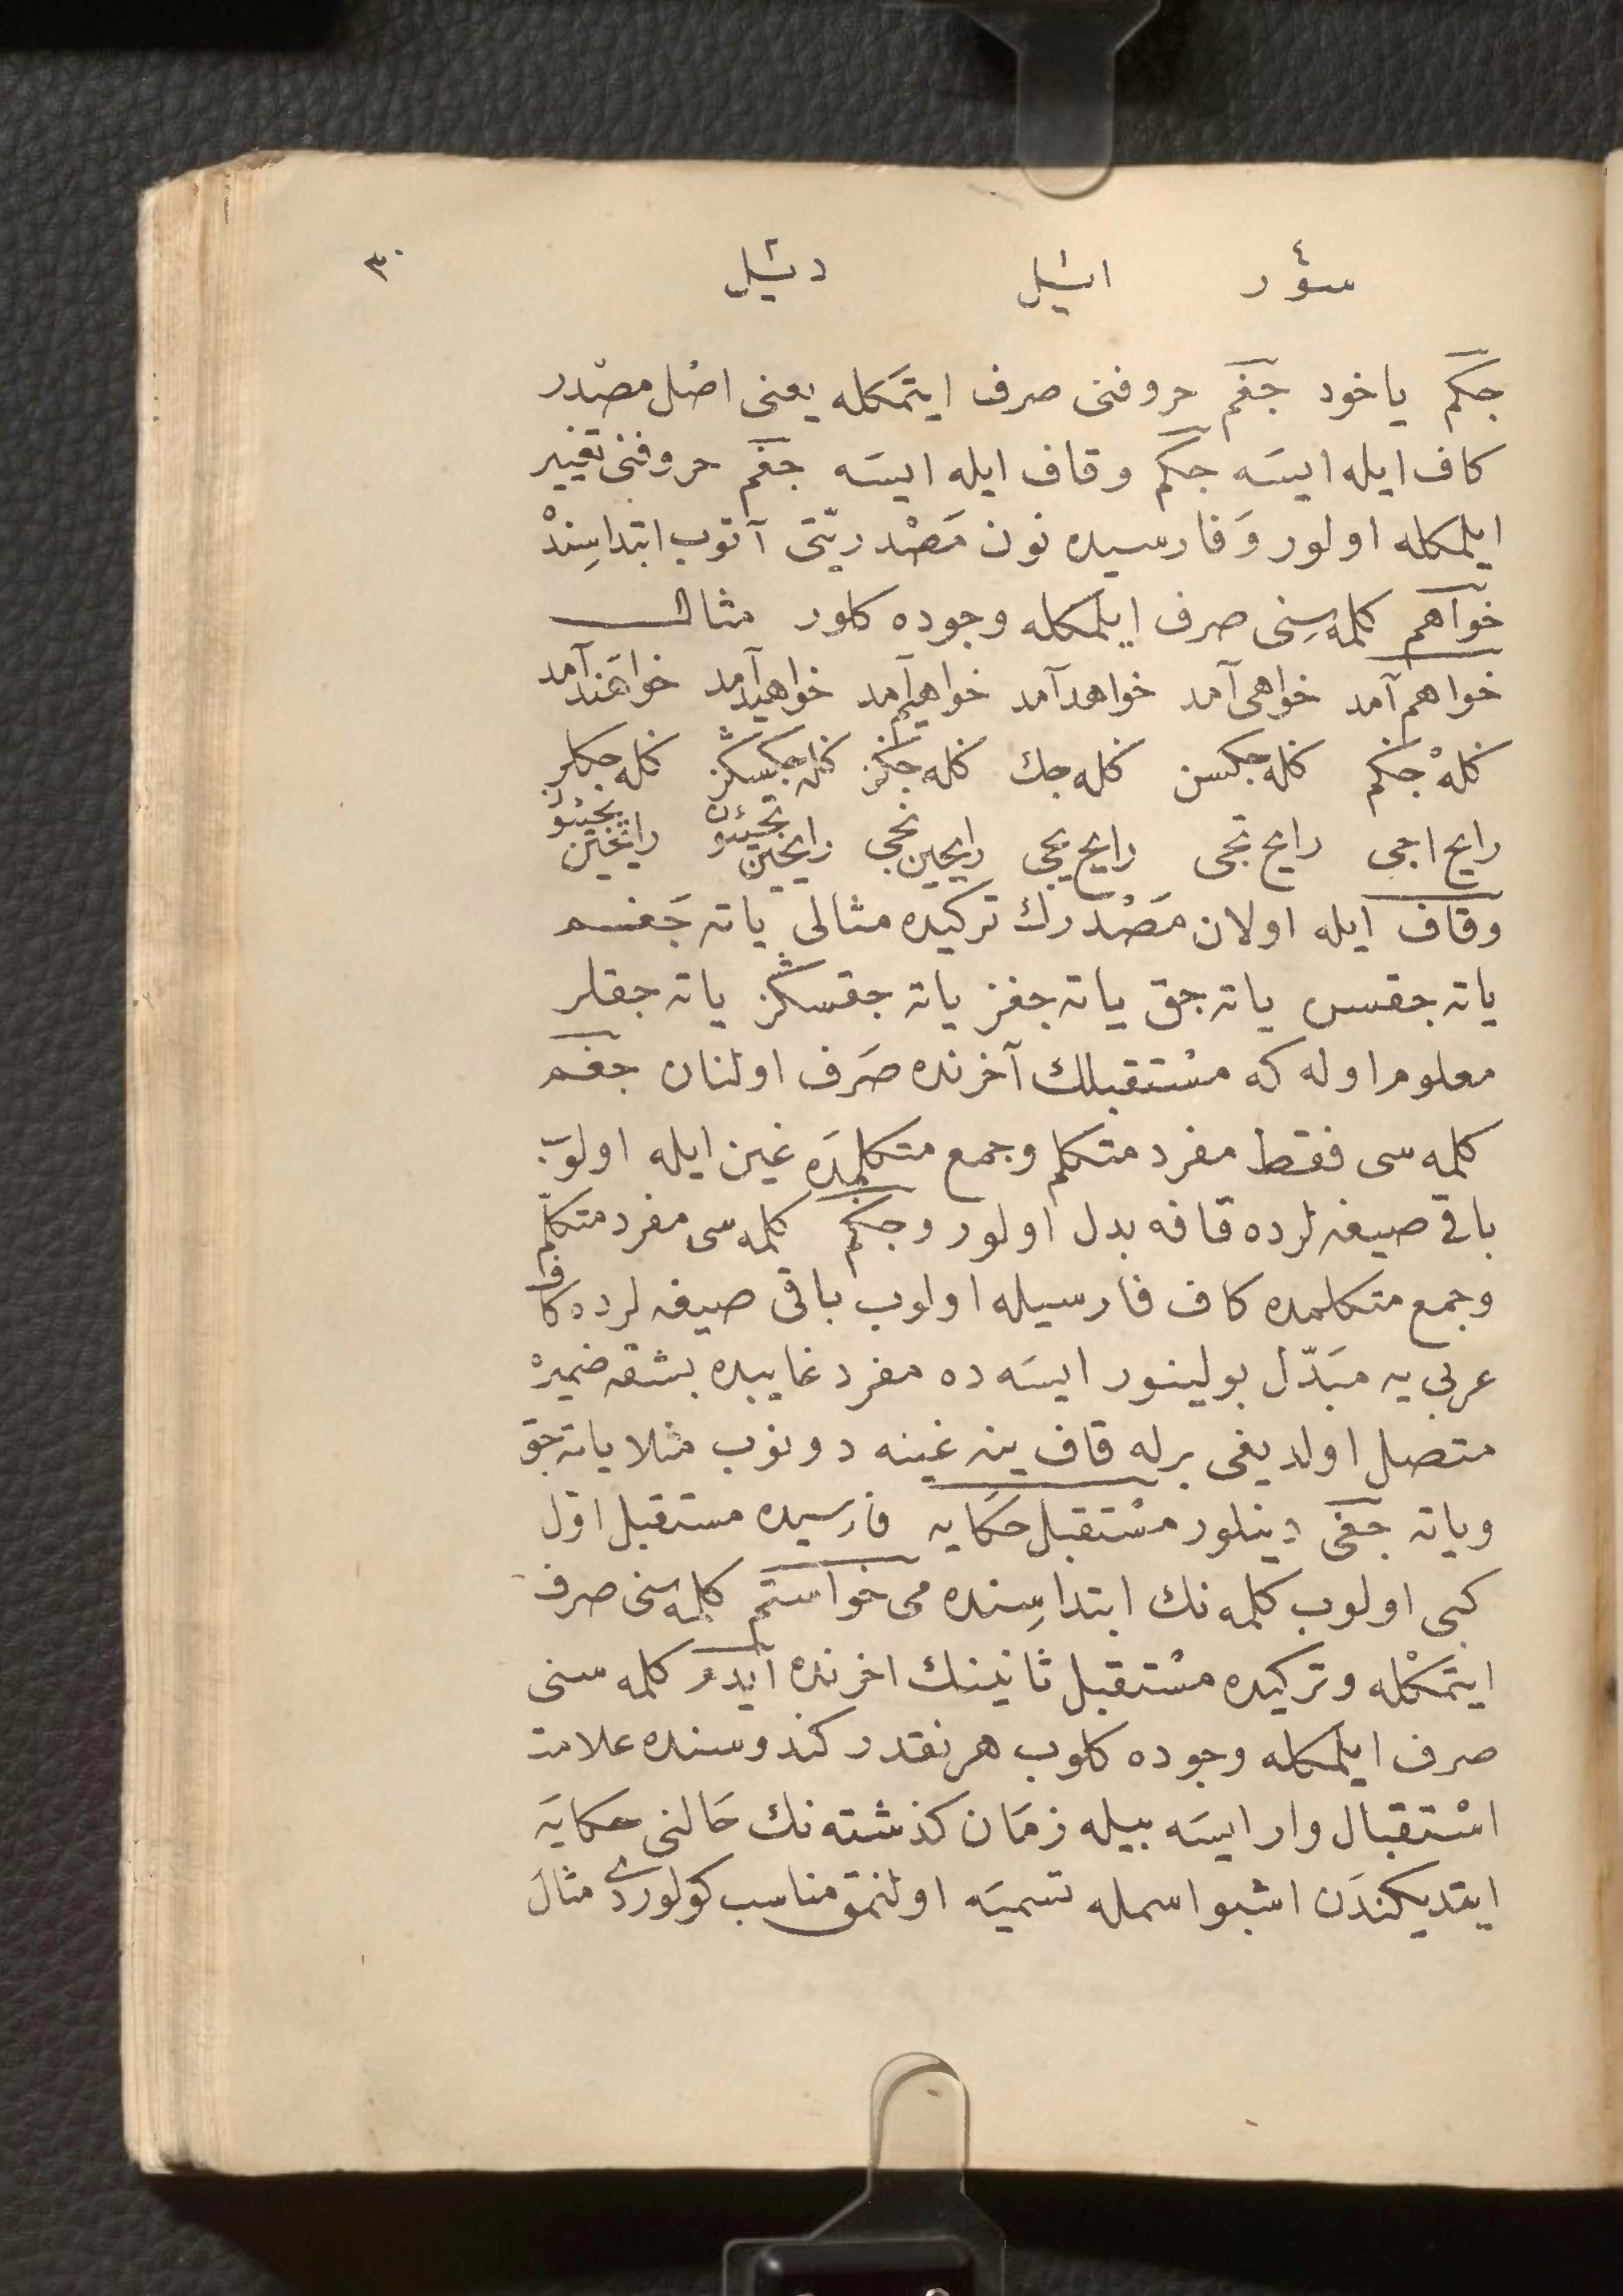 سؤر اشیل دشیل ٣٠
جكم یاخود جغم حروفنی صرف ایتمكله یعنی اصْل مصْدر
كاف ایله ایسَه جكم وقاف ایله ایسَه جغم حروفنی تغییر
ایلمكله اولور وَفارسیده نون مَصْدریّتی آتوب ابتداسِندْ
خواهم كلمه‌سِنی صرف ایلمكله وجوده كلور مثال
خواهم آمد خواهی آمد خواهد آمد خواهیم آمد خواهید آمد خواهَند آمد
كلهْ جكم كله جكسن كله جك كله جكز كله جكسكز كله جكلر
رایح اجی رایح تجی رایح یجی رایحین نجی
وقاف ایله اولان مَصْدرك تركیده مثالی یاته جَغم
یاته جقسن یاته جق یاته جغز یاته جقسكز یاته جقلر
معلوم اوله كه مسْتقبلك آخرنده صَرف اولنان جغم
كلمه سی فقط مفرد متكلم وجمع متكلمدَه غین ایله اولوَب
باقی صیغه لرده قافه بدل اولور وجكم كلمه سی مفرد متكلّم
وجمع متكلمده كاف فارسیله اولوب باقی صیغه لرده كاف
عربی یه مبَدّل بولینور ایسَه ده مفرد غایبده بشقه ضمیرهْ
متصل اولدیغی برله قاف ینه غینه دونوب مثلا یاته جق
ویاته جغی دینلور مسْتقبل حكَایه فارسیده مستقبل اوّل
كبی اولوب كلمه نك ابتداسِنده می خواستم كلمه سنی صرف
ایتمكْله وتركیده مسْتقبل ثانینك اخرنده ایدم كلمه سنی
صرف ایلمكله وجوده كلوب هرنقدر كندوسنده علامت
اسْتقبال وار ایسَه بیله زمَان كذشته نك حَالنی حكایَه
ایتدیكندَن اشبو اسمله تسمیَه اولنمق مناسب كولوردی مثالَ